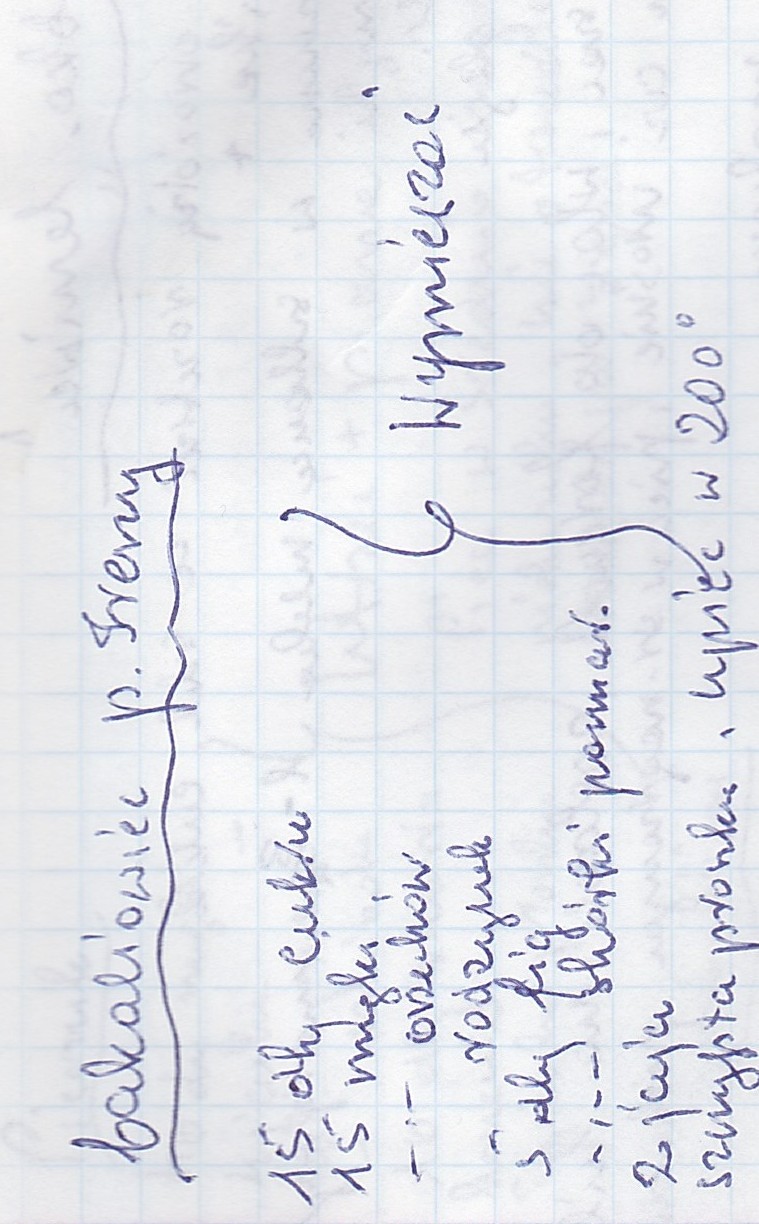 bakaliowiec p. Ireny
15 dkg cukru
15 mąki
-"- orzechów
- rodzynek
5 dkg fig
-"- skórki pomar.
2 jaja
szczypta proszku, upiec w 200°
Wymieszać